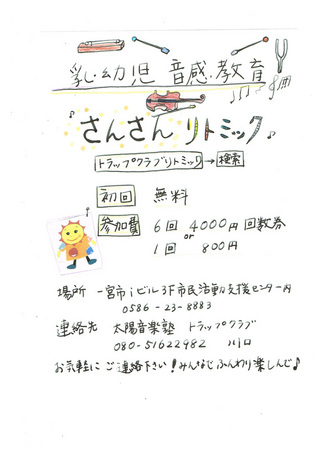 乳・幼児 音感・教育
さんさんリトミック♪
トラップクラブリトミック → 検索
初回 無料
参加費 6回 4000円 回数券
or
1回 800円
場所 一宮市iビル3F市民活動支援センター内
0586-23-8883
連絡先 太陽音楽塾 トラップクラブ
080-51622982 川口
お気軽にご連絡下さい!みんなでふんわり楽しんで♪